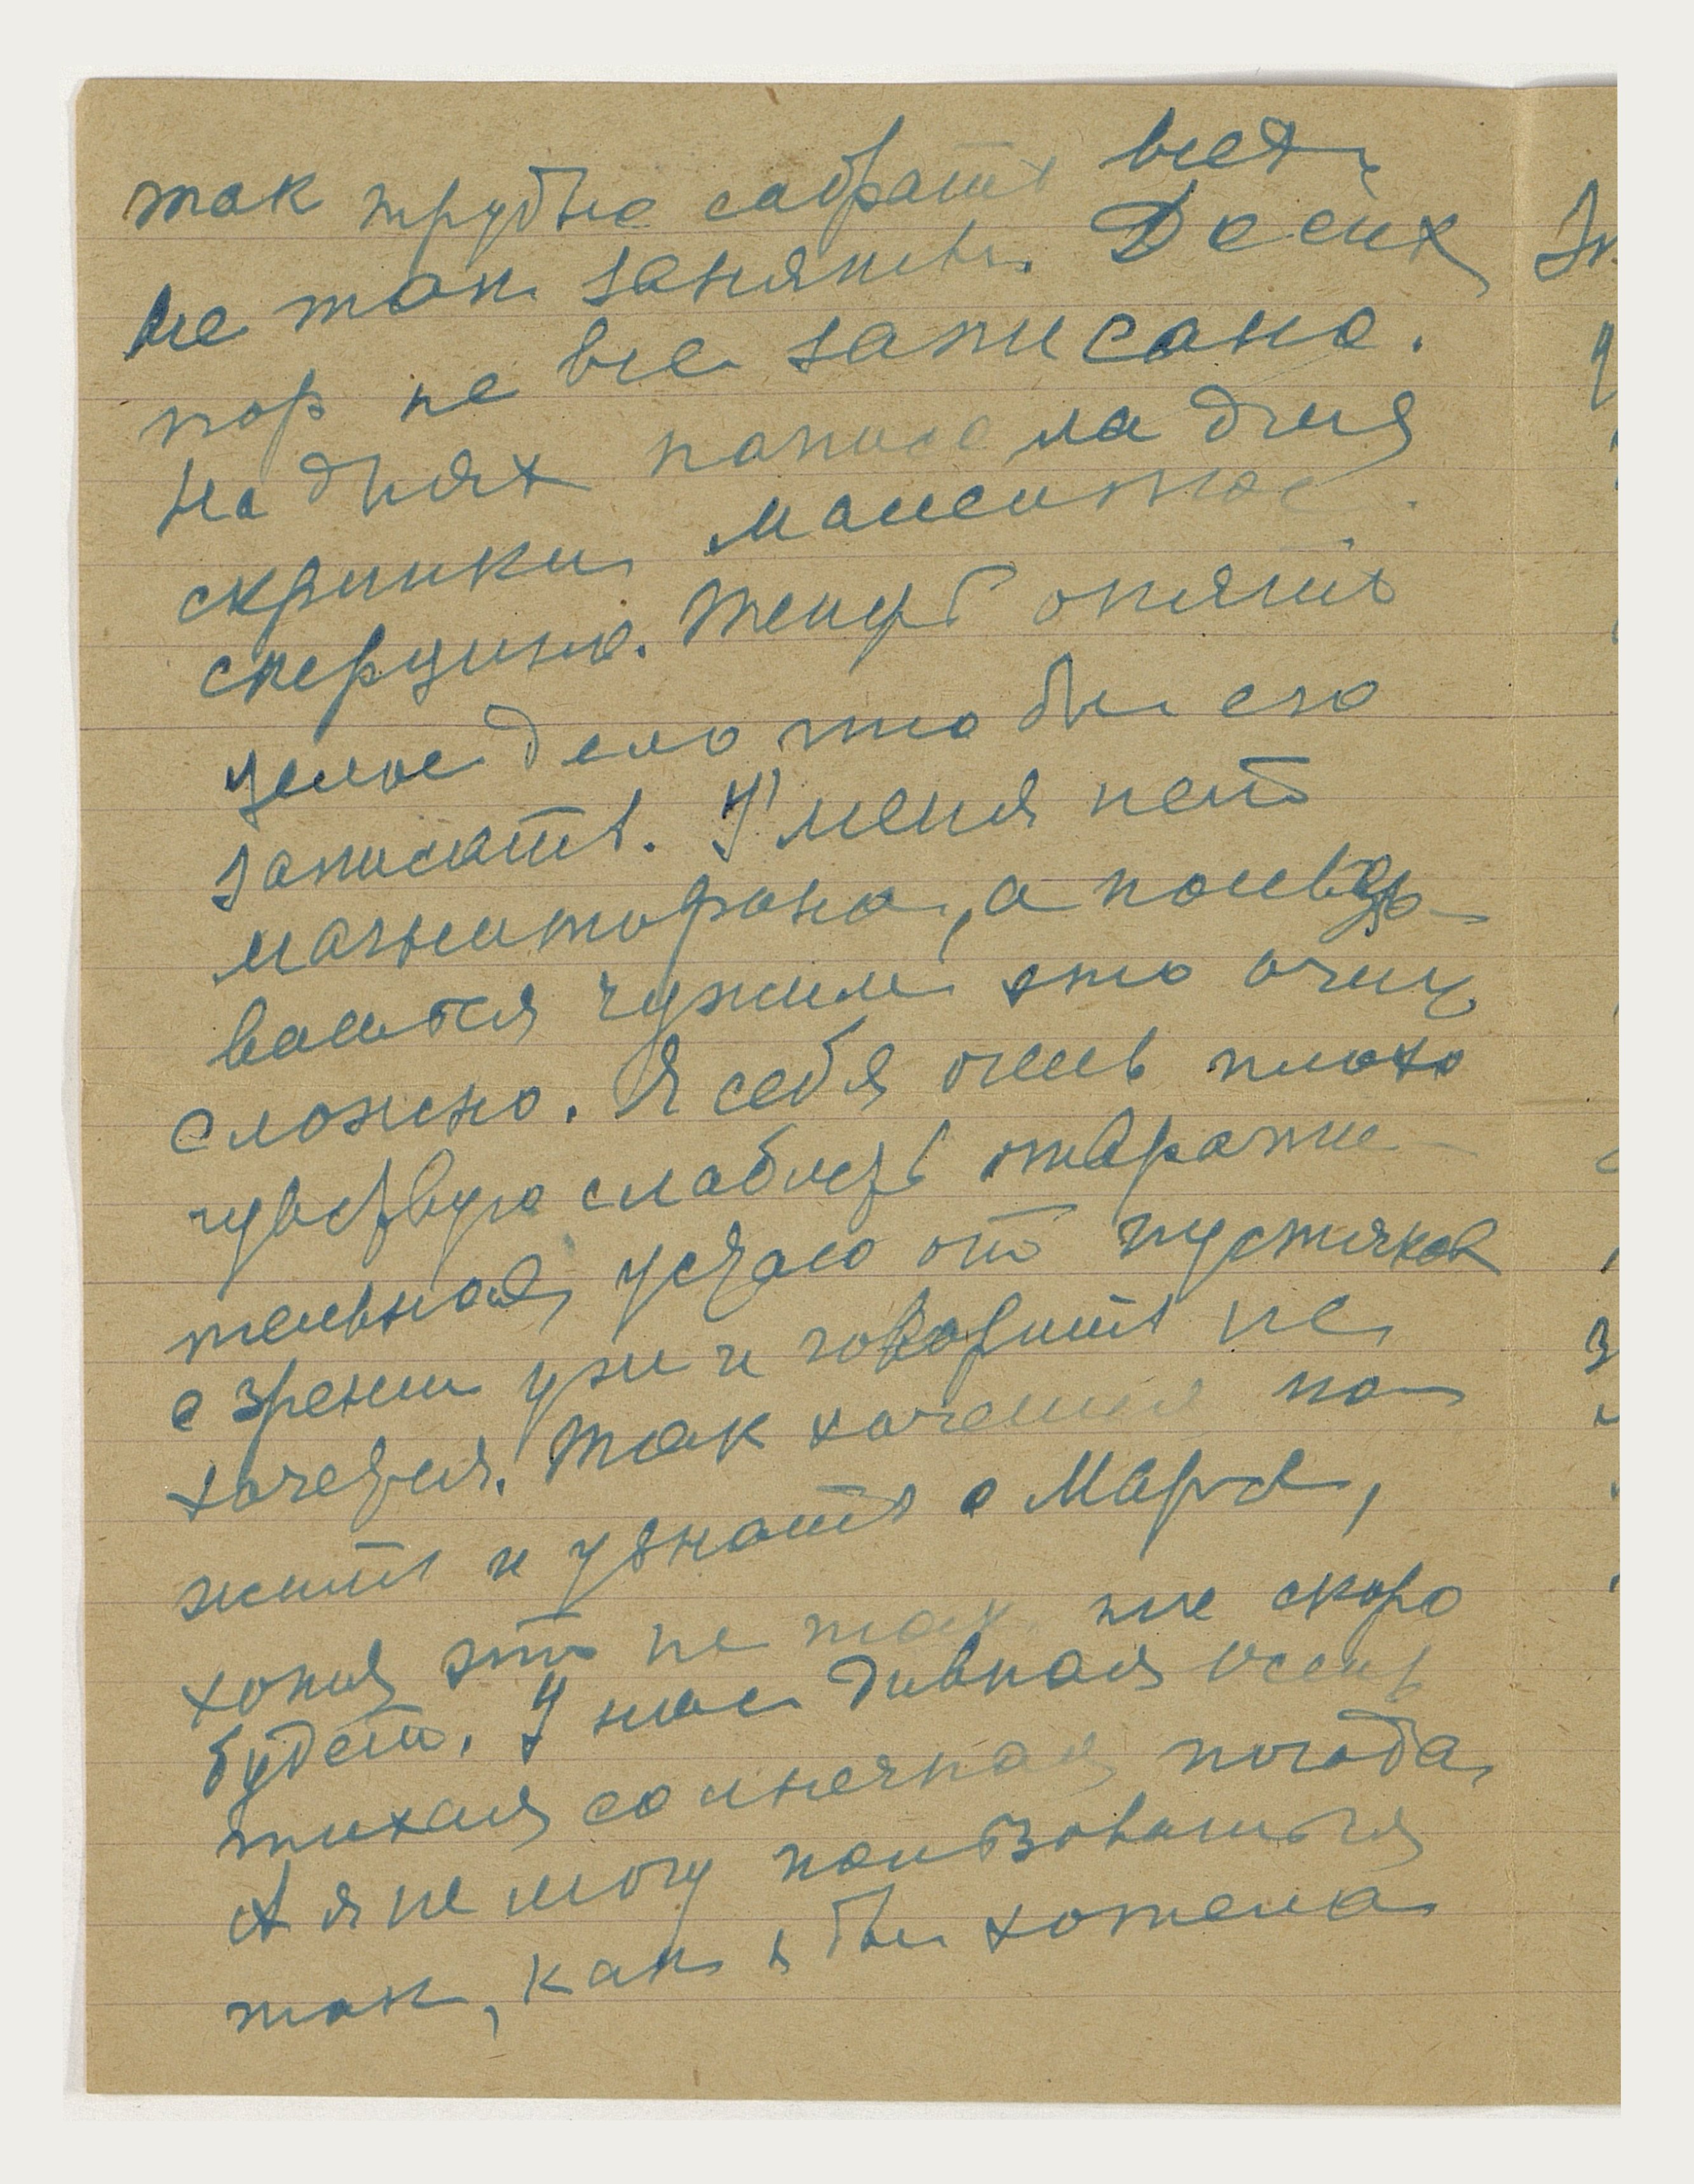 так трудно собрать всех,
все так заняты. До сих
пор не все записано.
На днях написала для
скрипки маленькое
скерцино. Теперь опять
целое дело чтобы его
записать. У меня нет
магнитофона, а пользо-
ваться чужим это очень
сложно. Я себя очень плохо
чувствую слабость отврати-
тельная, устаю от пустяков
о зрении уж и говорить не
хочется. Так хочется по-
жить и узнать о Марсе,
хотя это не так то скоро
будет. У нас дивная осень
тихая солнечная погода,
А я не могу пользоваться
так, как бы хотела